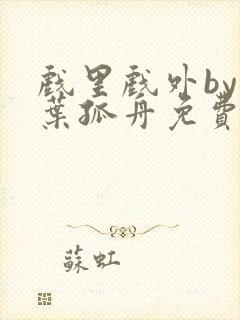 戲里戲外by
葉孤舟免費
蘇虹